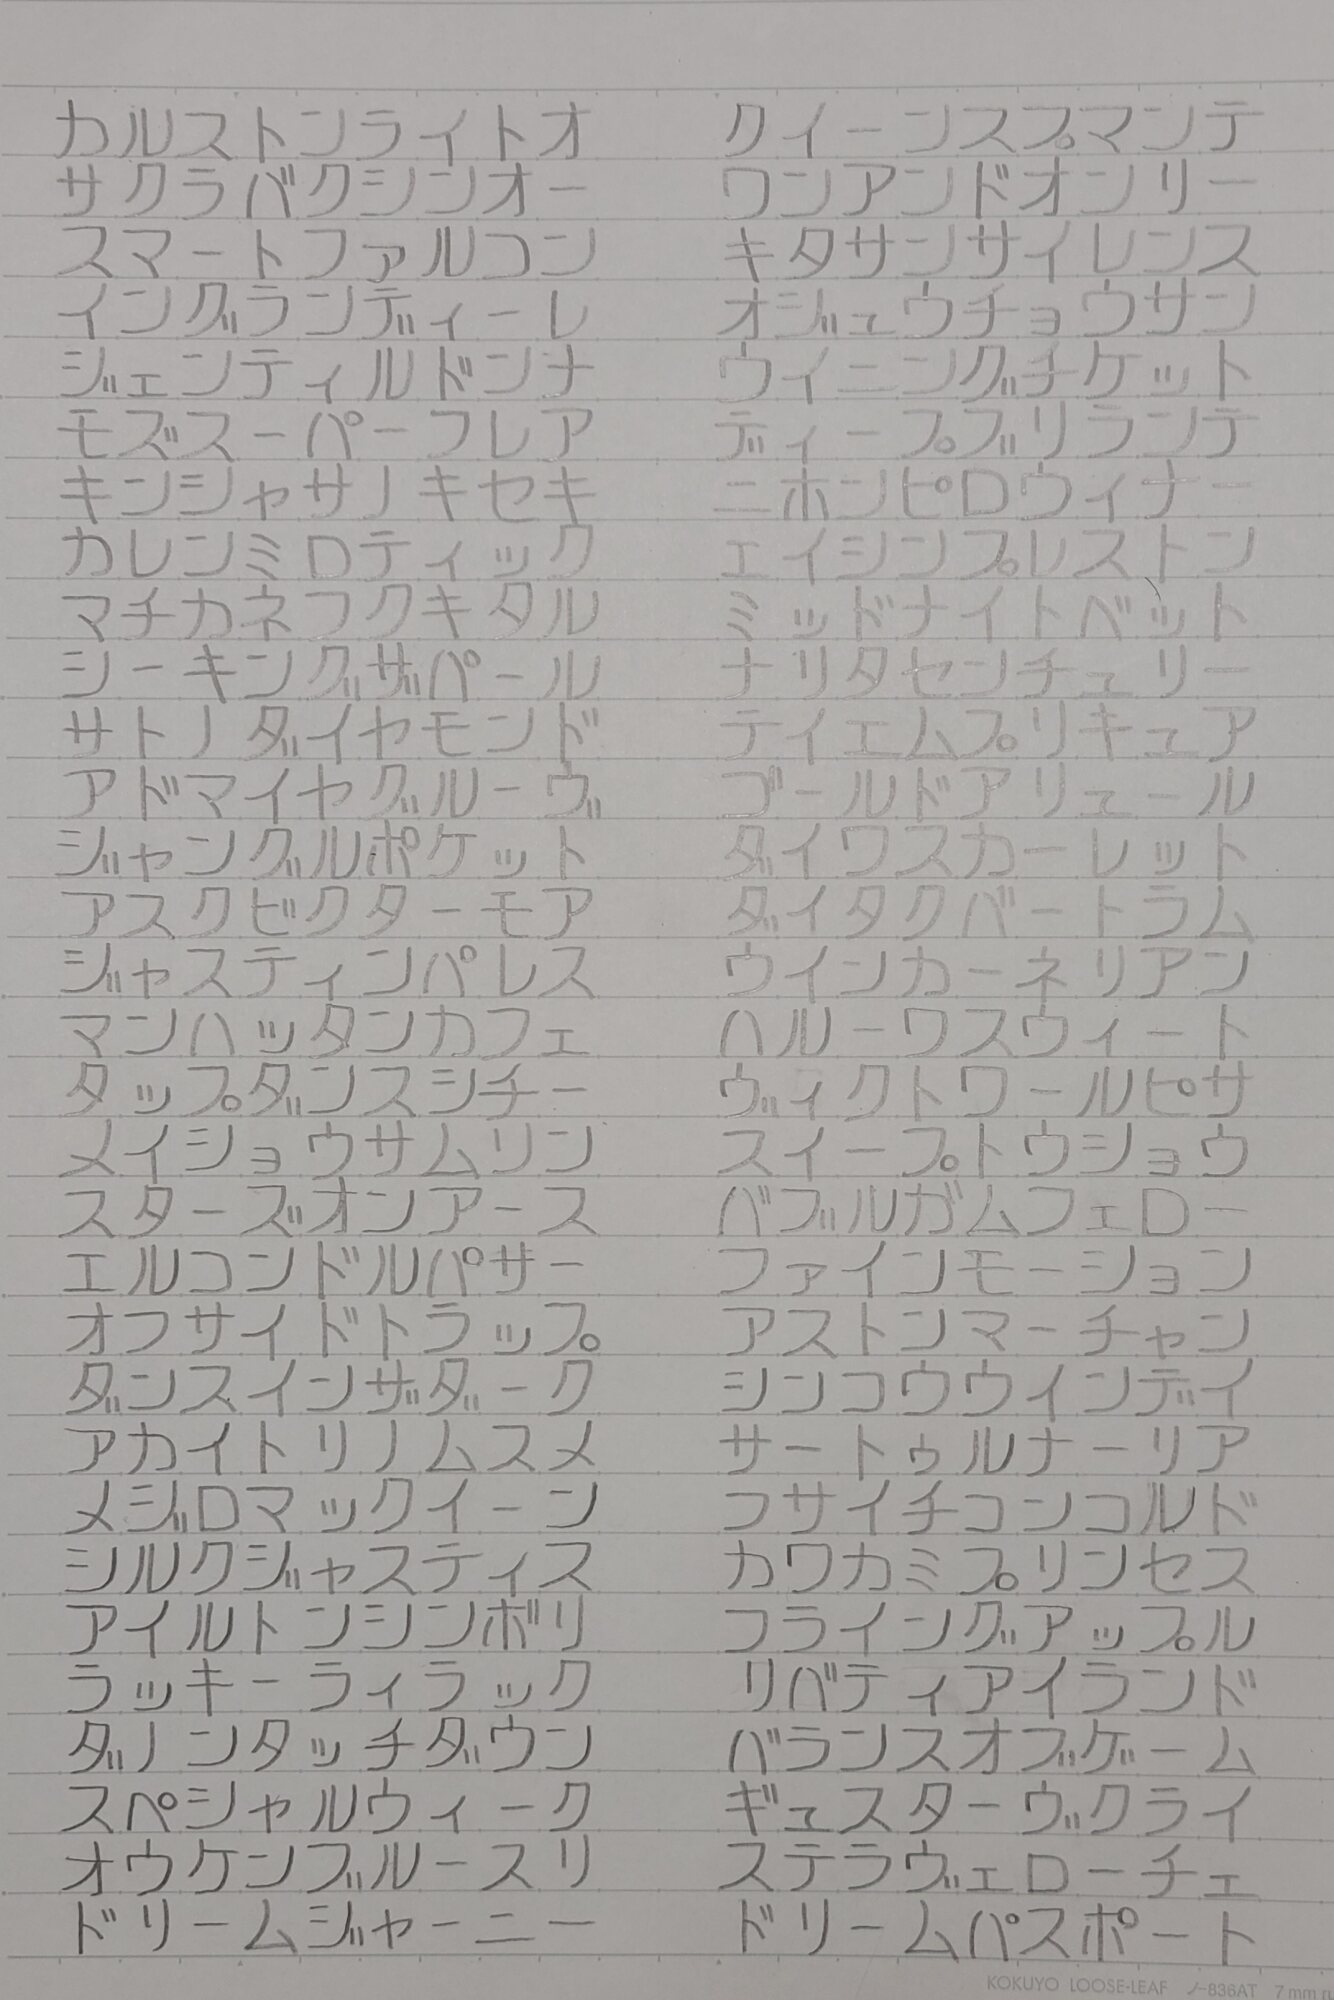 カルストンライトオ
サクラバクシンオー
スマートファルコン
イングランディーレ
ジェンティルドンナ
モズスーパーフレア
キンシャサノキセキ
カレンミロティック
マチカネフクキタル
シーキングザパール
サトノダイヤモンド
アドマイヤグルーヴ
ジャングルポケット
アスクビクターモア
ジャスティンパレス
マンハッタンカフェ
タップダンスシチー
メイショウサムソン
スターズオンアース
エルコンドルパサー
オフサイドトラップ
ダンスインザダーク
アカイトリノムスメ
メジロマックイーン
シルクジャスティス
アイルトンシンボリ
ラッキーライラック
ダノンタッチダウン
スペシャルウィーク
オウケンブルースリ
ドリームジャーニー
クイーンスプマンテ
ワンアンドオンリー
キタサンサイレンス
オジュウチョウサン
ウイニングチケット
ディープブリランテ
ニホンピロウィナー
エイシンプレストン
ミッドナイトベット
ナリタセンチュリー
テイエムプリキュア
ゴールドアリュール
ダイワスカーレット
ダイタクバートラム
ウインカーネリアン
ハルーワスウィート
ヴィクトワールピサ
スイープトウショウ
バブルガムフェロー
ファインモーション
アストンマーチャン
シンコウウインデイ
サートゥルナーリア
フサイチコンコルド
カワカミプリンセス
フライングアップル
リバティアイランド
バランスオブゲーム
ギュスターヴクライ
ステラヴェローチェ
ドリームパスポート
KOKUYO LOOSE-LEAF ノ-836AT 7mm